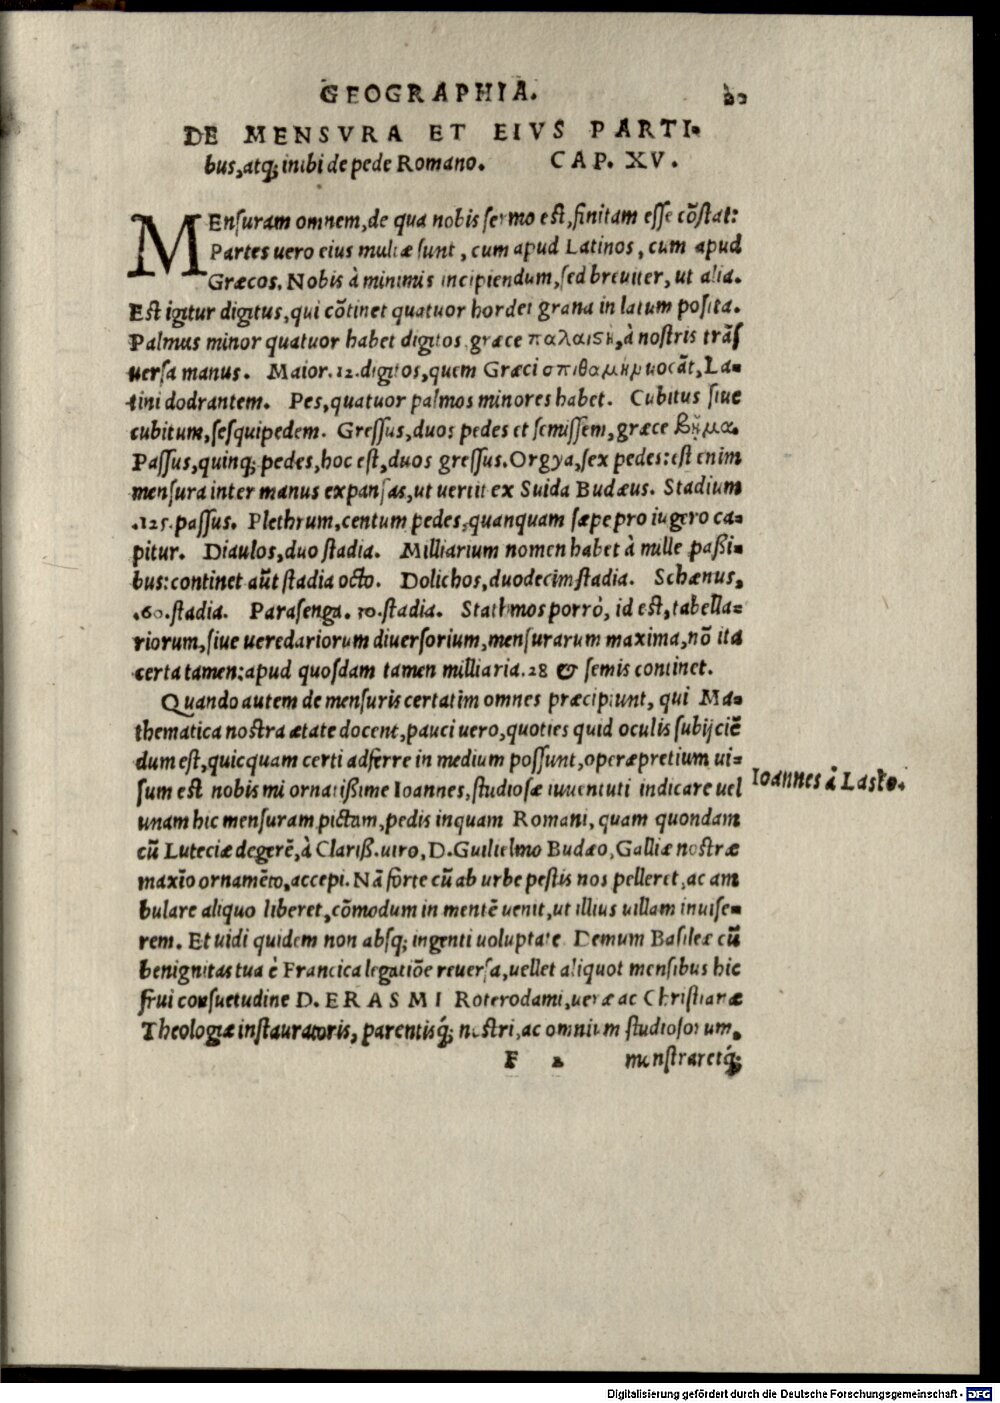 GEOGRAPHIA. 20
DE MENSVRA ET EIVS PARTI-
bus, atq; inibi de pede Romano. CAP. XV.
MEnsuram omnem, de qua nobis sermo est, finitam esse cõstat:
Partes uero eius multæ sunt, cum apud Latinos, cum apud
Græcos. Nobis à minimis incipiendum, sed breuiter, ut alia.
Est igitur digitus, qui cõtinet quatuor hordei grana in latum posita.
Palmus minor quatuor habet digitos, græce παλαιϛὴ, à nostris trãs
uersa manus. Maior .12. digitos, quem Græci σπιθαμὴμ uocãt, La-
tini dodrantem. Pes, quatuor palmos minores habet. Cubitus siue
cubitum, sesquipedem. Gressus, duos pedes et semissem, græce βῆμα.
Passus, quinq; pedes, hoc est, duos gressus. Orgya, sex pedes: est enim
mensura inter manus expansas, ut uertit ex Suida Budæus. Stadium
.125. passus. Plethrum, centum pedes, quanquam sæpe pro iugero ca-
pitur. Diaulos, duo stadia. Milliarium nomen habet à mille paßi-
bus: continet aũt stadia octo. Dolichos, duodecim stadia. Schænus,
.60. stadia. Parasenga .30. stadia. Stathmos porrò, id est, tabella-
riorum, siue ueredariorum diuersorium, mensurarum maxima, nõ ita
certa tamen: apud quosdam tamen milliaria .28 & semis continet.
Quando autem de mensuris certatim omnes præcipiunt, qui Ma-
thematica nostra ætate docent, pauci uero, quoties quid oculis subijciẽ
dum est, quicquam certi adferre in medium possunt, operæpretium ui-
sum est nobis mi ornatißime Ioannes, studiosæ iuuentuti indicare uel
Ioannes à Lasko.
unam hic mensuram pictam, pedis inquam Romani, quam quondam
cũ Luteciæ degerẽ, à Clariß. uiro, D. Guilielmo Budæo, Galliæ nostræ
maxĩo ornamẽto, accepi. Nã forte cũ ab urbe pestis nos pelleret, ac am
bulare aliquo liberet, cõmodum in mentẽ uenit, ut illius uillam inuise-
rem. Et uidi quidem non absq; ingenti uoluptate. Demum Basileæ cũ
benignitas tua è Francica legatiõe reuersa, uellet aliquot mensibus hic
frui consuetudine D. ERASMI Roterodami, ueræ ac Christianæ
Theologiæ instauratoris, parentisq́; nostri, ac omnium studiosorum,
F 2 monstraretq́;
Digitalisierung gefördert durch die Deutsche Forschungsgemeinschaft - DFG